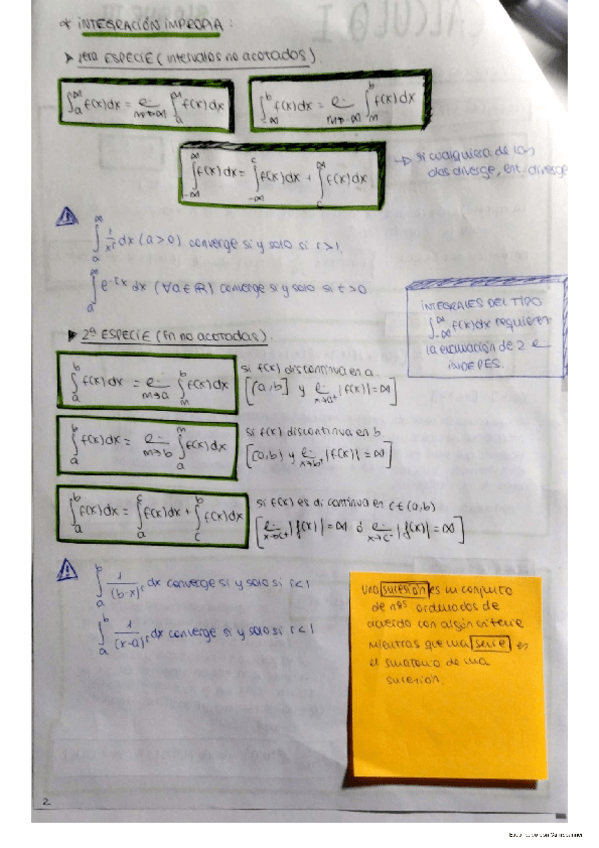 * INTEGRACIÓN IMPROPIA:
➤ 1era ESPECIE (intervalos no acotados).
∫ₐ^∞ f(x)dx = lim_{m→∞} ∫ₐ^m f(x)dx
∫_{-∞}^b f(x)dx = lim_{m→-∞} ∫_m^b f(x)dx
∫_{-∞}^∞ f(x)dx = ∫_{-∞}^c f(x)dx + ∫_c^∞ f(x)dx
→ si cualquiera de las
dos diverge, ent. diverge
⚠ ∫ₐ^∞ 1/x^r dx (a>0) converge si y solo si r>1
∫ₐ^∞ e^{-tx} dx (∀a∈ℝ) converge si y solo si t>0
INTEGRALES DEL TIPO
∫_{-∞}^∞ f(x)dx requieren
la evaluación de 2
INDEPES.
➤ 2ª ESPECIE (Fn no acotadas).
∫ₐ^b f(x)dx = lim_{m→a} ∫_m^b f(x)dx
si f(x) discontinua en a.
[(a,b] y lim_{x→a⁺} |f(x)|=∞]
∫ₐ^b f(x)dx = lim_{m→b} ∫ₐ^m f(x)dx
si f(x) discontinua en b
[[a,b) y lim |f(x)|=∞]
∫ₐ^b f(x)dx = ∫ₐ^c f(x)dx + ∫_c^b f(x)dx
si f(x) es di continua en c∈(a,b)
[lim_{x→c⁺} |f(x)|=∞ ó lim_{x→c⁻} |f(x)|=∞]
⚠ ∫ₐ^b 1/(b-x)^r dx converge si y solo si r<1
∫ₐ^b 1/(x-a)^r dx converge si y solo si r<1
Una sucesión es un conjunto
de nºs ordenados de
acuerdo con algún criterio
mientras que una serie es
el sumatorio de una
sucesión.
2